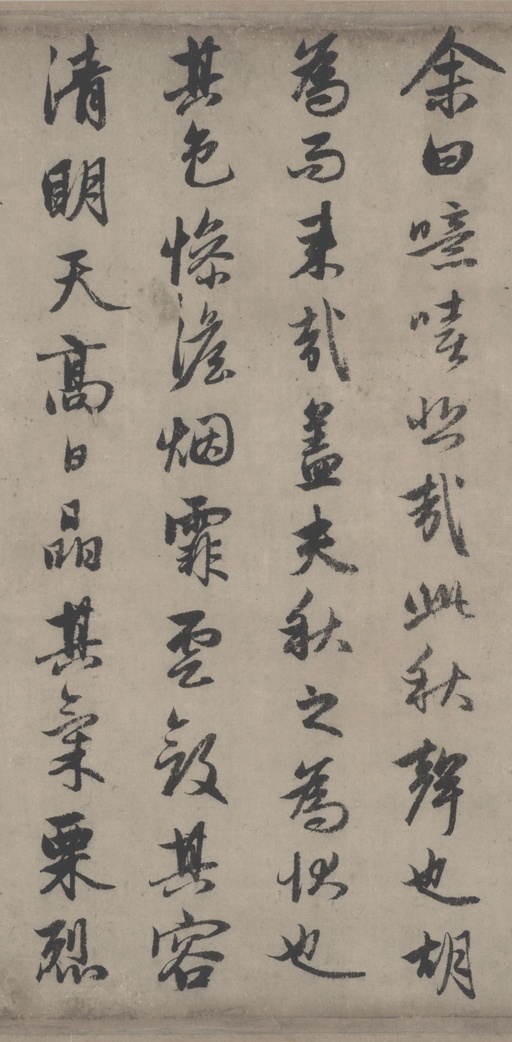 余曰噫嘻悲哉此秋聲也胡
為而来哉盖夫秋之為状也
其色惨澹烟霏雲斂其容
清明天高日晶其氣栗烈